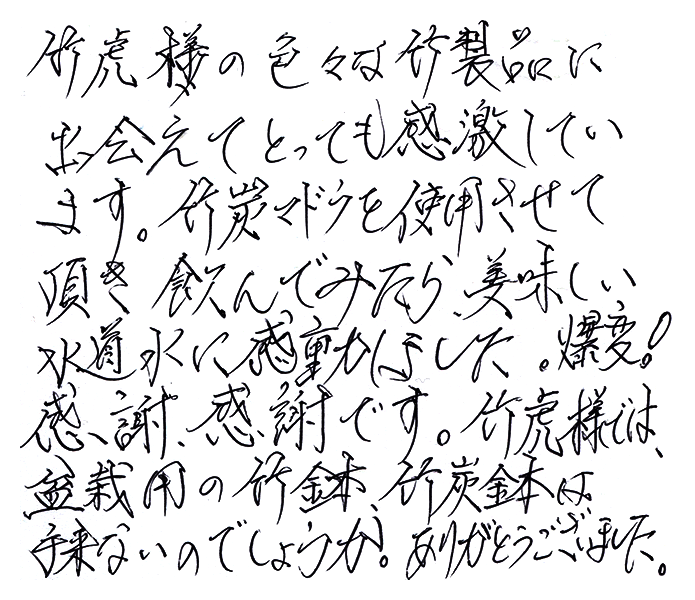 竹虎様の色々な竹製品に
出会えてとっても感激してい
ます。竹炭マドラを使用させて
頂き飲んでみたら、美味しい
水道水に感動しました。爆変!
感、謝、感、謝です。竹虎様では、
盆栽用の竹鉢、竹炭鉢は
来ないのでしょうか。ありがとうございました。